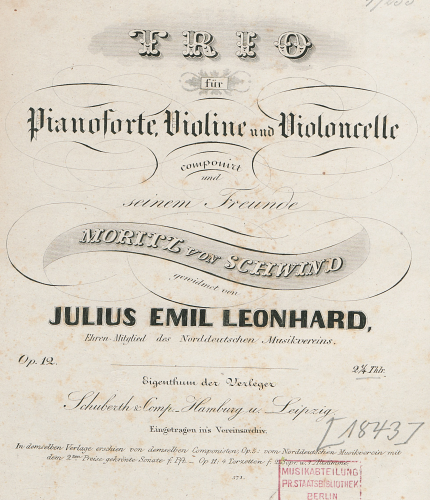 TRIO
für
Pianoforte, Violine und Violoncelle
componirt
und
seinem Freunde
MORITZ VON SCHWIND
gewidmet von
JULIUS EMIL LEONHARD,
Ehren-Mitglied des Norddeutschen Musikvereins.
Op. 12.
Eigenthum der Verleger
Schuberth & Comp. Hamburg u. Leipzig
Eingetragen in's Vereinsarchiv.
[1843]
In demselben Verlage erschien von demselben Componisten: Op. 5. vom Norddeutschen Musikverein mit
dem 2ten Preise gekrönte Sonate f. Pfte
MUSIKABTEILUNG
PR. STAATSBIBLIOTHEK
BERLIN